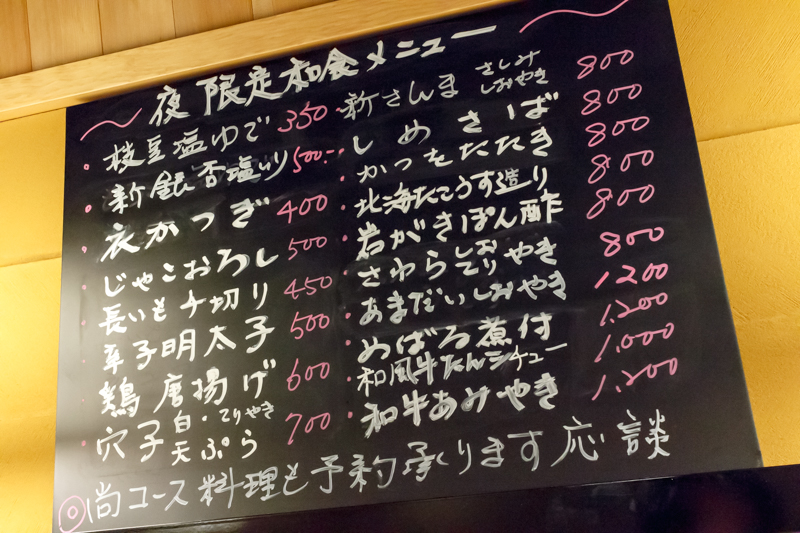 夜 限定和食メニュー
枝豆塩ゆで 350
新銀杏塩いり 500
衣かつぎ 400
じゃこおろし 500
長いも千切り 450
辛子明太子 500
鶏 唐揚げ 600
穴子 白・てりやき 天ぷら 700
新さんま さしみ しおやき 800
しめさば 800
かつをたたき 800
北海たこうす造り 800
岩がきぽん酢 800
さわら しお てり やき 800
あまだいしおやき 1200
めばる煮付 1,200
和風牛たんシチュー 1,000
和牛あみやき 1,200
◎尚コース料理も予約承ります応談